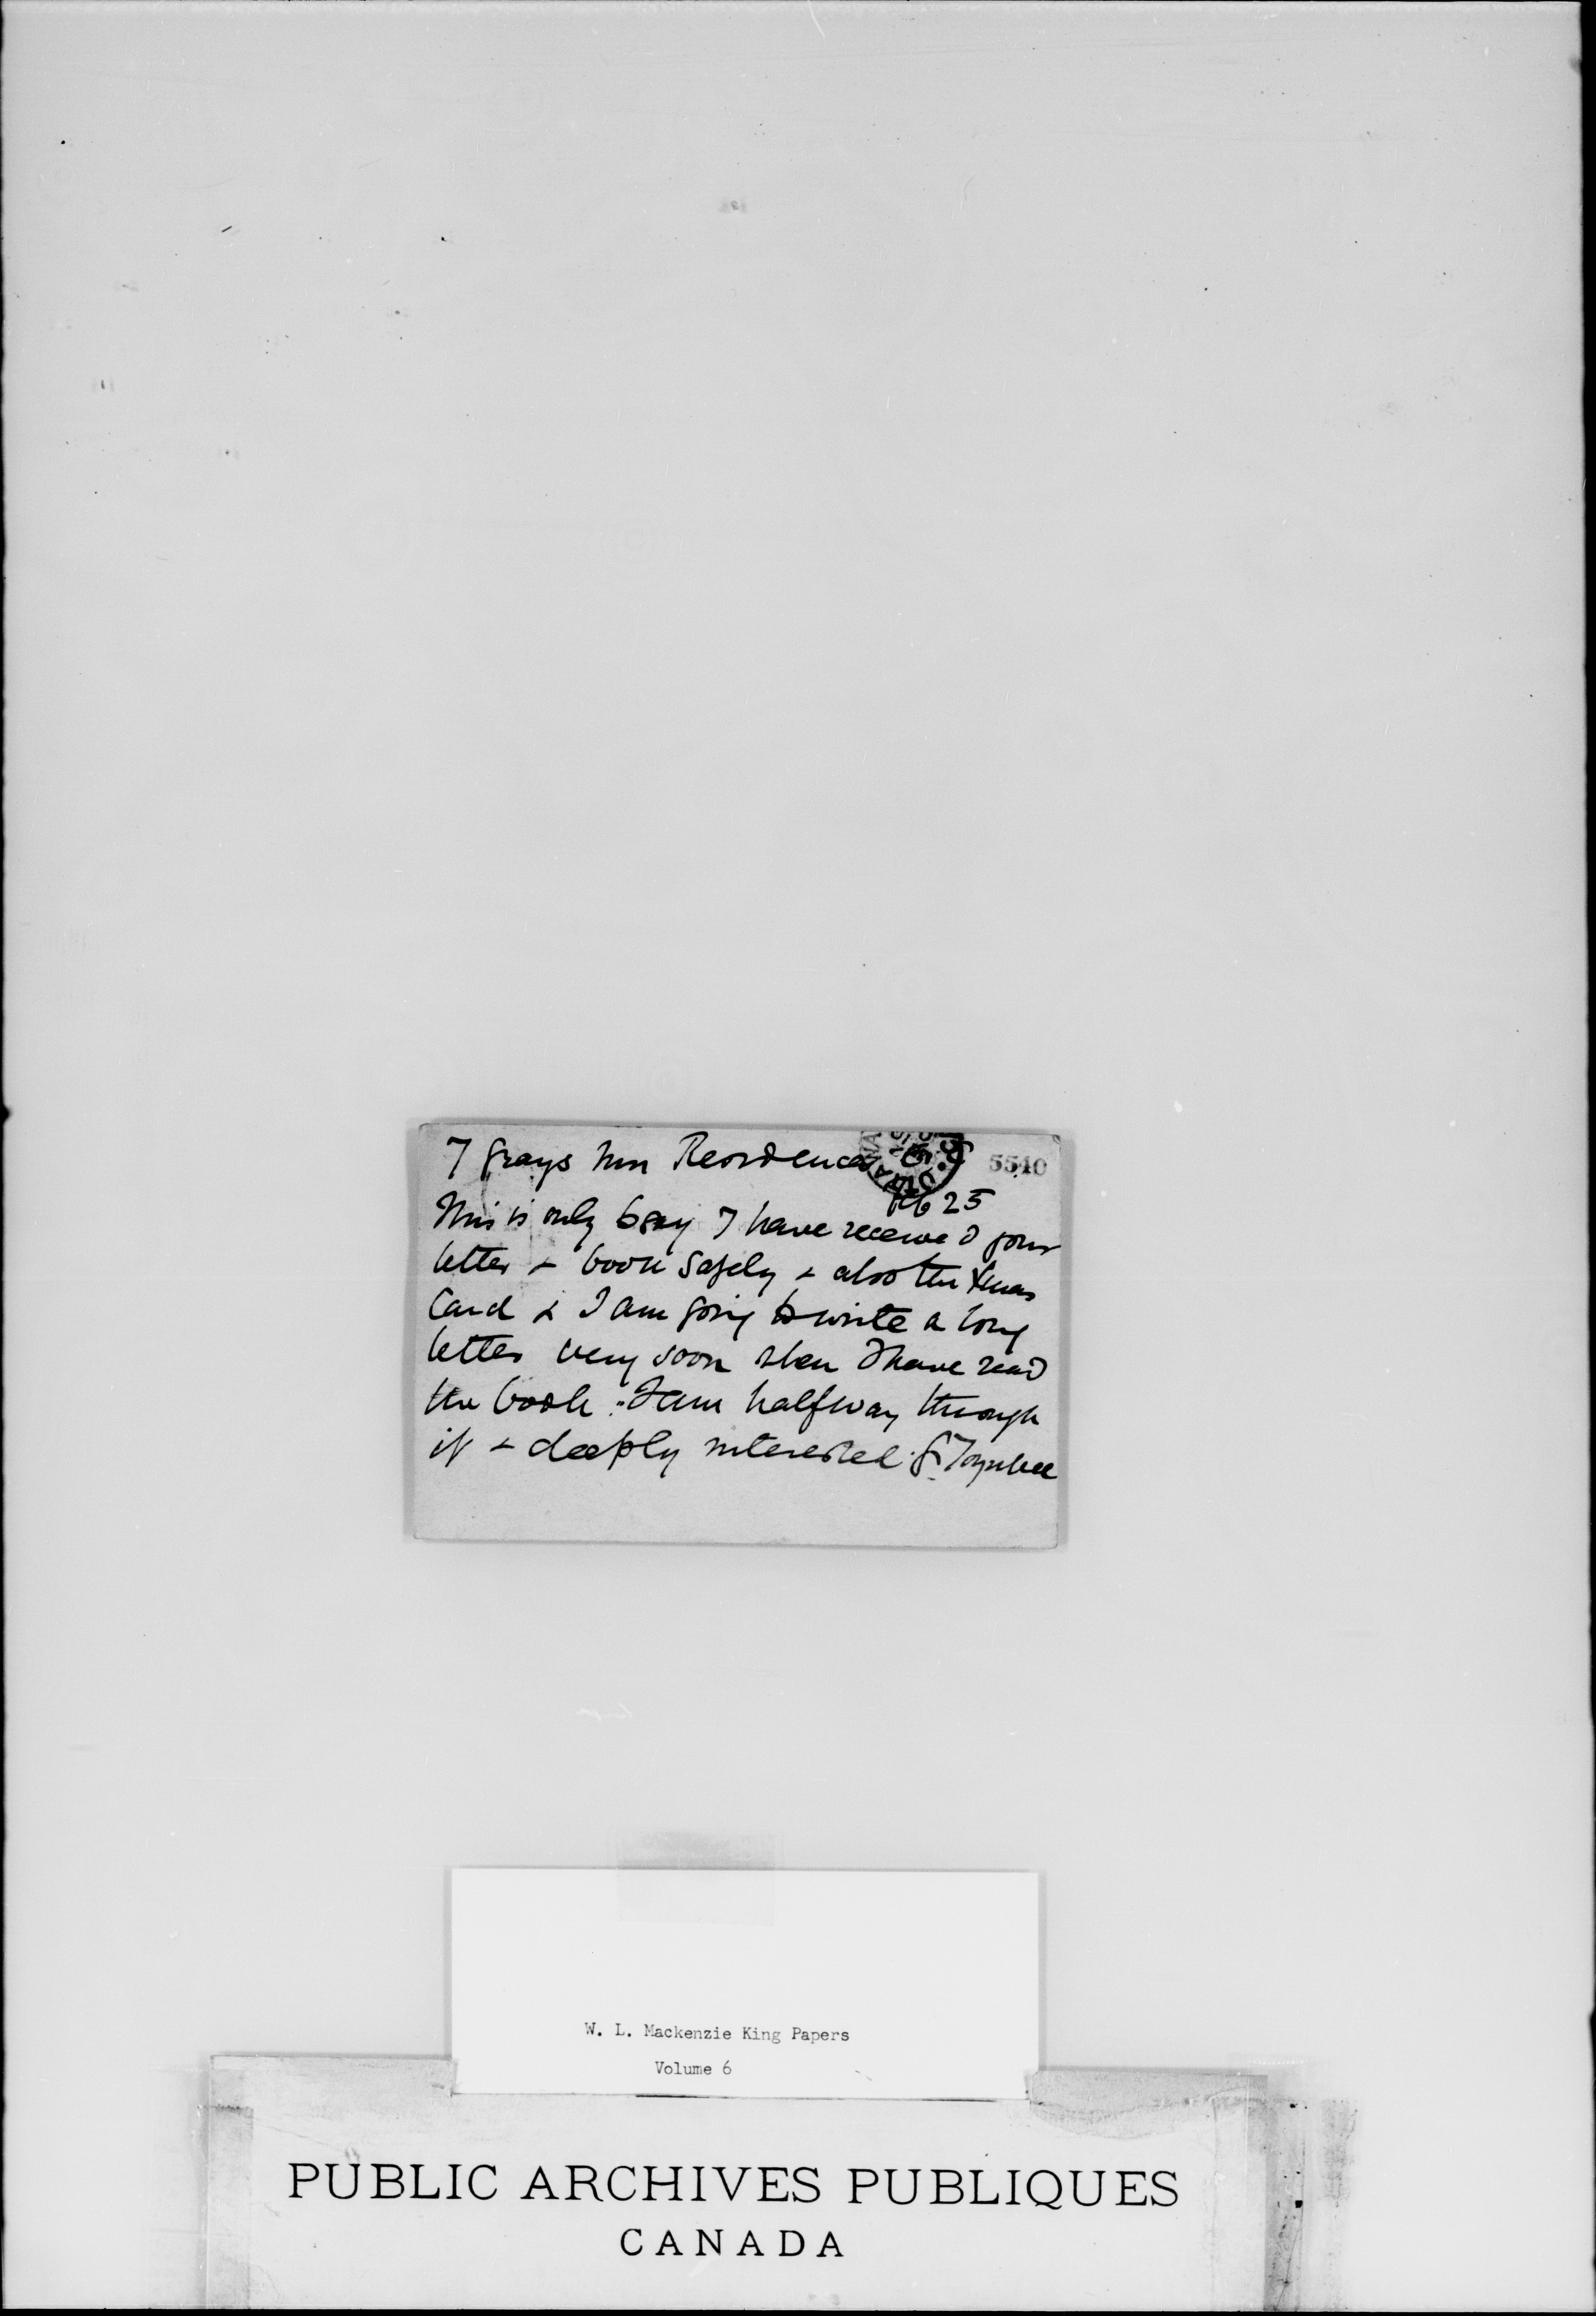 7 Grays Inn Residences E.C
5540
Feb 25
This is only to say I have received your
letter & book safely & also the Xmas
Card & I am going to write a long
letter very soon when I have read
the book. I am halfway through
it & deeply interested. G Toynbee
W. L. Mackenzie King Papers
Volume 6
PUBLIC ARCHIVES PUBLIQUES
CANADA